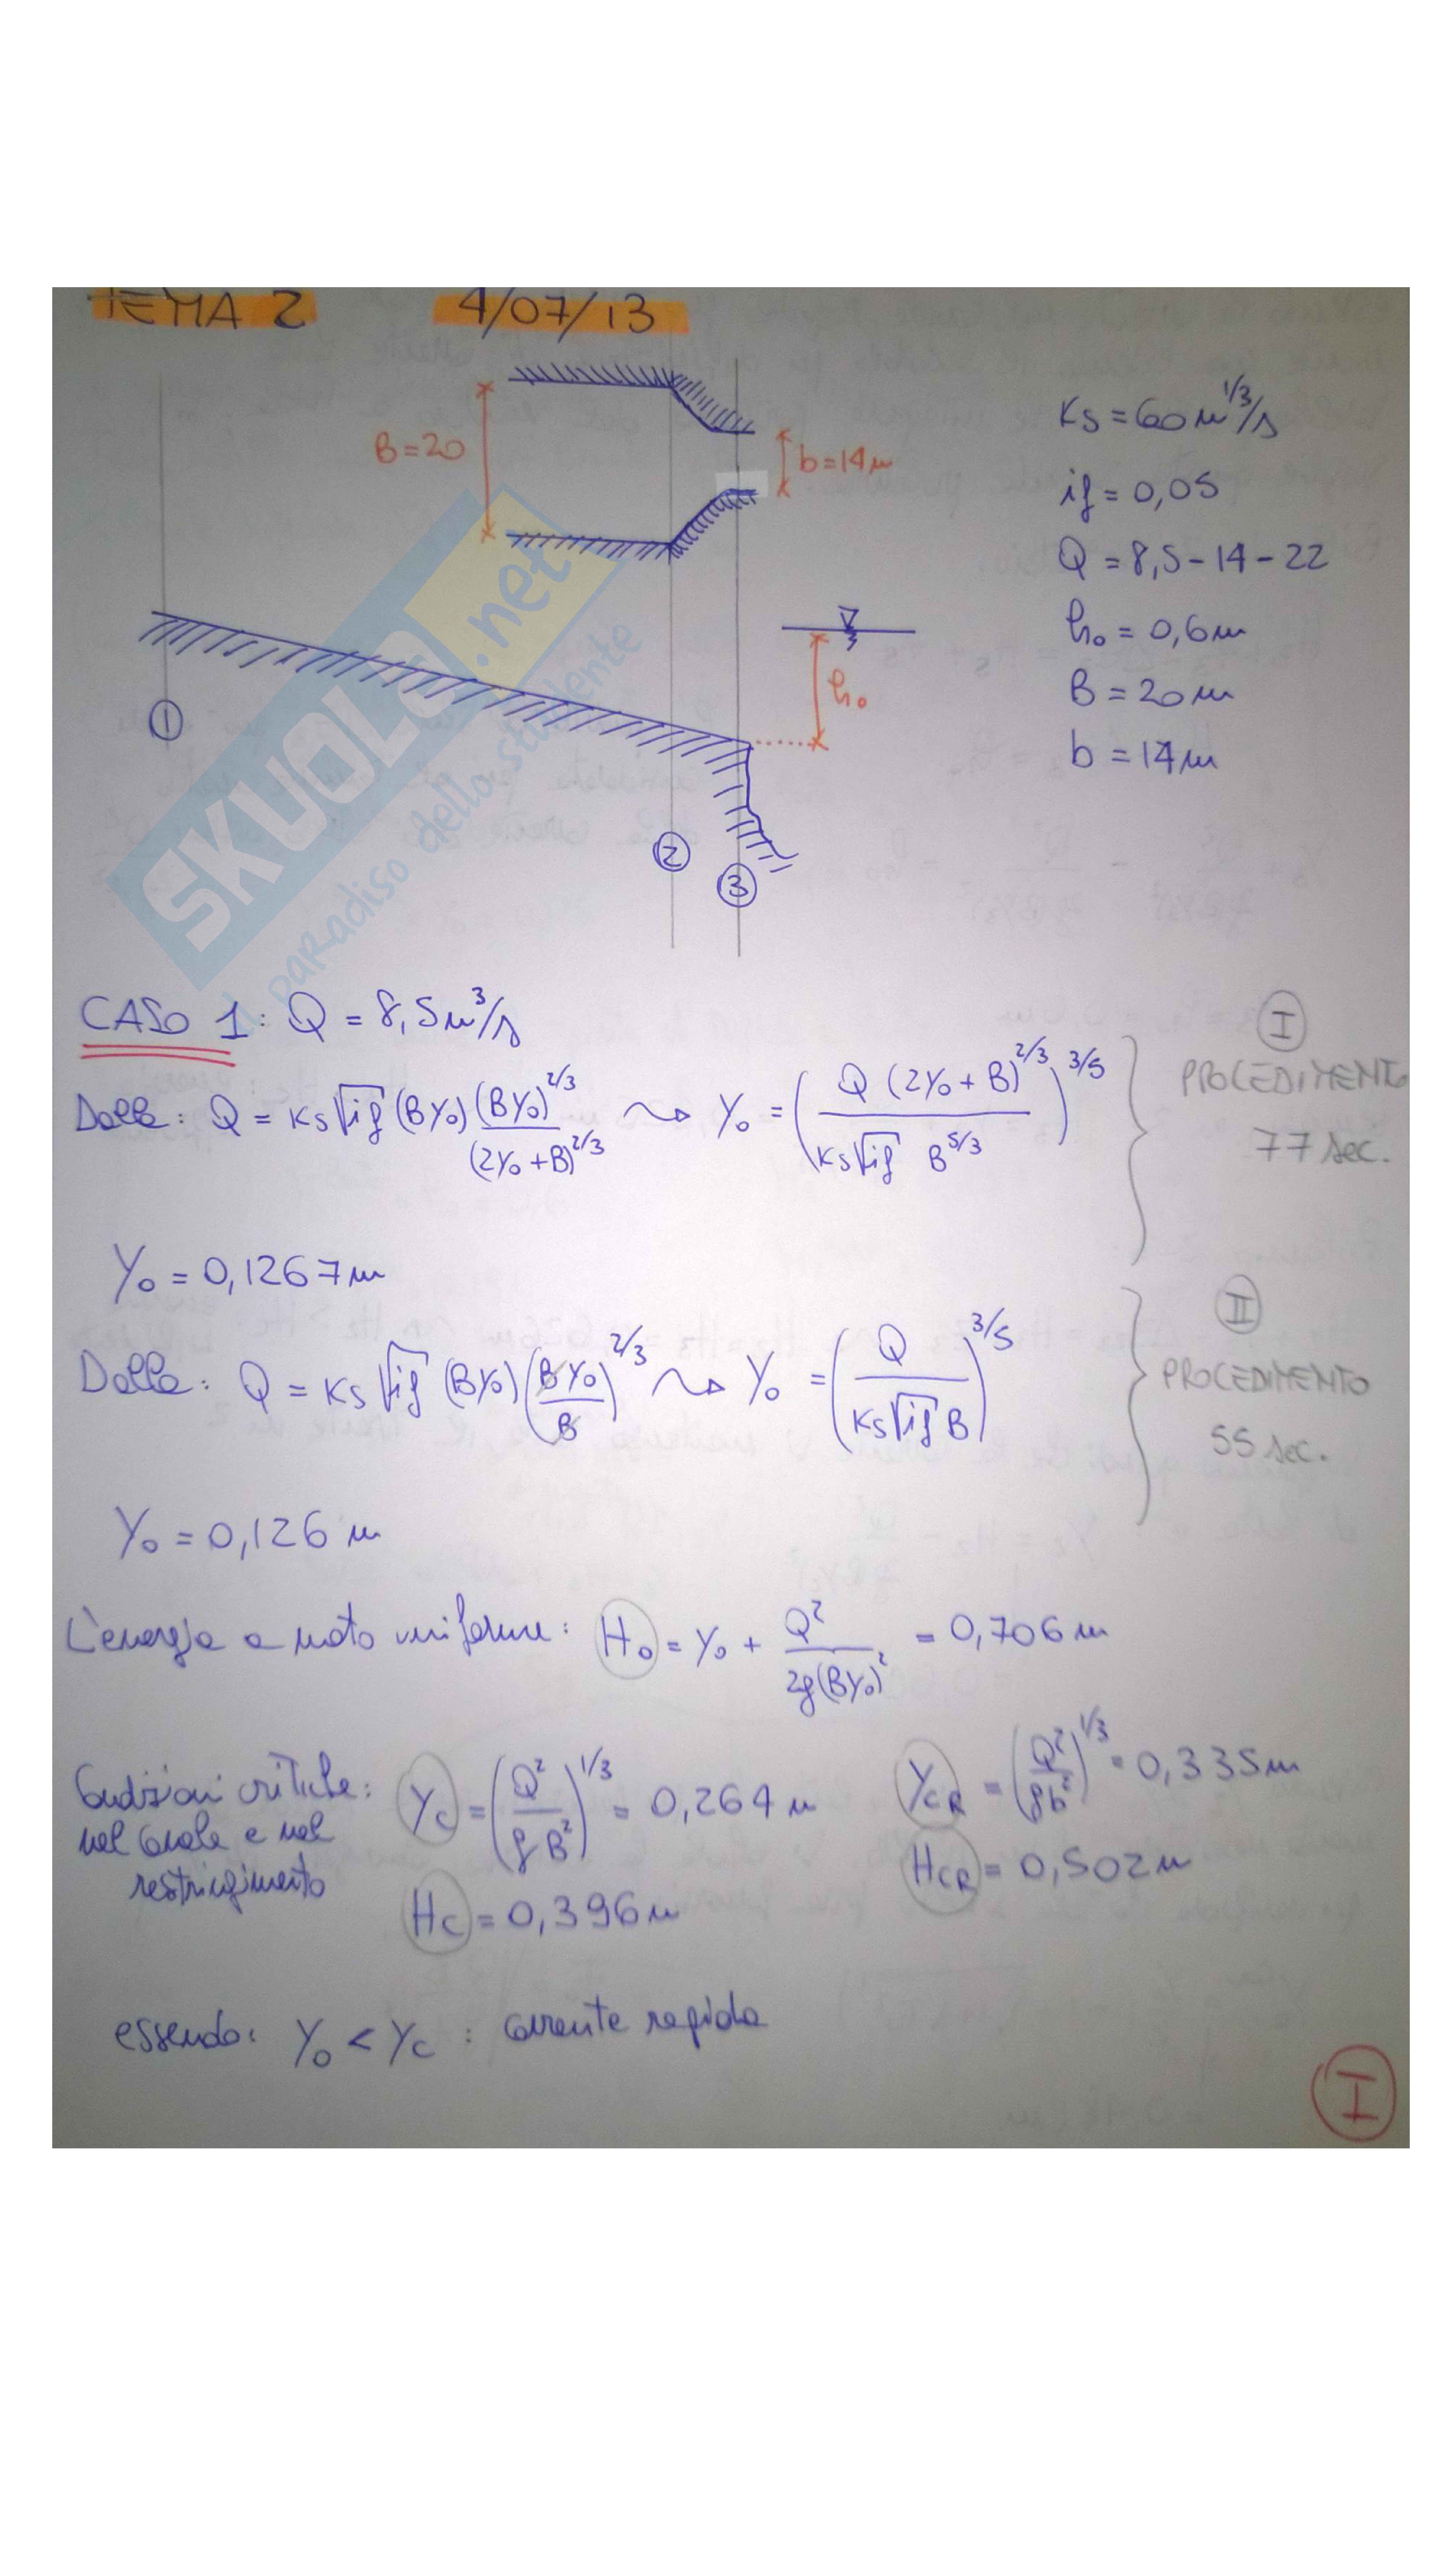 TEMA 2 4/07/13
B=20
b=14m
Ks = 60 m^1/3/s
if = 0,05
Q = 8,5-14-22
h₀ = 0,6m
B = 20m
b = 14m
h₀
① ② ③
SKUOLA.net
il paradiso dello studente
CASO 1: Q = 8,5m³/s
Dalla: Q = Ks√if (BY₀) (BY₀)^2/3 / (2Y₀+B)^2/3 ⇝ Y₀ = (Q (2Y₀+B)^2/3 / Ks√if B^5/3)^3/5
I
PROCEDIMENTO
77 sec.
Y₀ = 0,1267m
Dalla: Q = Ks√if (BY₀) (BY₀/B)^2/3 ⇝ Y₀ = (Q / Ks√if B)^3/5
II
PROCEDIMENTO
55 sec.
Y₀ = 0,126 m
L'energia a moto uniforme: H₀ = Y₀ + Q² / 2g(BY₀)² = 0,706 m
Condizioni critiche:
nel canale e nel
restringimento
Yc = (Q²/gB²)^1/3 = 0,264 m
YCR = (Q²/gb²)^1/3 = 0,335m
Hc = 0,396m
HCR = 0,502m
essendo: Y₀ < Yc : corrente rapida
I